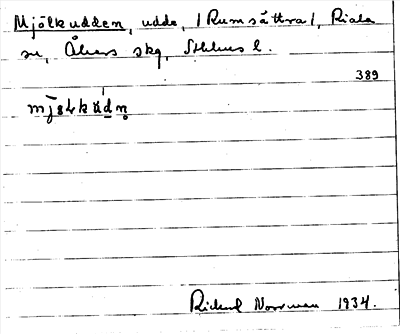 Mjölkudden, udde, /Rumsättra/, Riala
sn, Åkers skg, Sthlms l.
389
Rickard Norrman 1934.